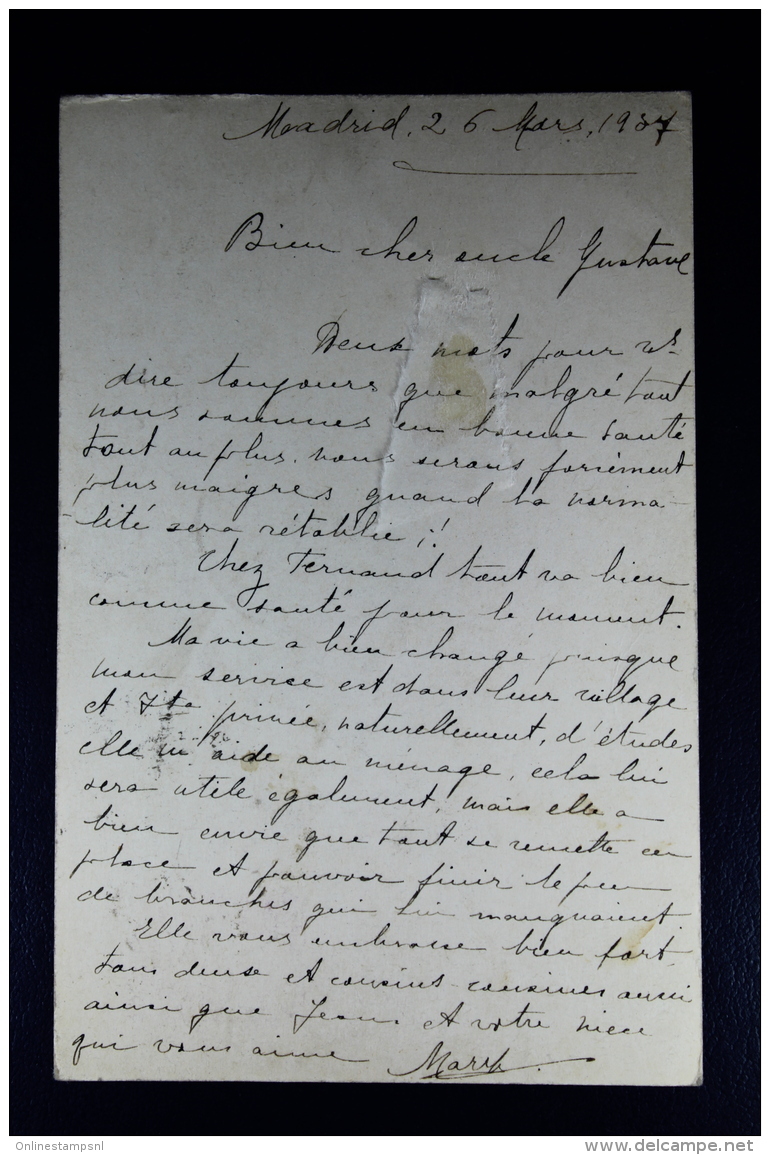 Madrid, 26 Mars, 1937
Bien cher oncle Gustave
Deux mots pour vs
dire toujours que malgré tout
nous sommes en bonne santé
tout au plus nous serons forcément
plus maigres quand la norma-
lité sera rétablie ;!
Chez Fernand tout va bien
comme santé pour le moment.
Ma vie a bien changé puisque
mon service est dans leur village
et privée, naturellement, d'études
elle m'aide au ménage, cela lui
sera utile également, mais elle a
bien envie que tout se remette en
place et pouvoir finir le peu
de branches qui lui manquaient
Elle vous embrasse bien fort,
tous deux et cousins-cousines aussi
ainsi que Jean et votre nièce
qui vous aime
Onlinestampsnl
delcampe.net